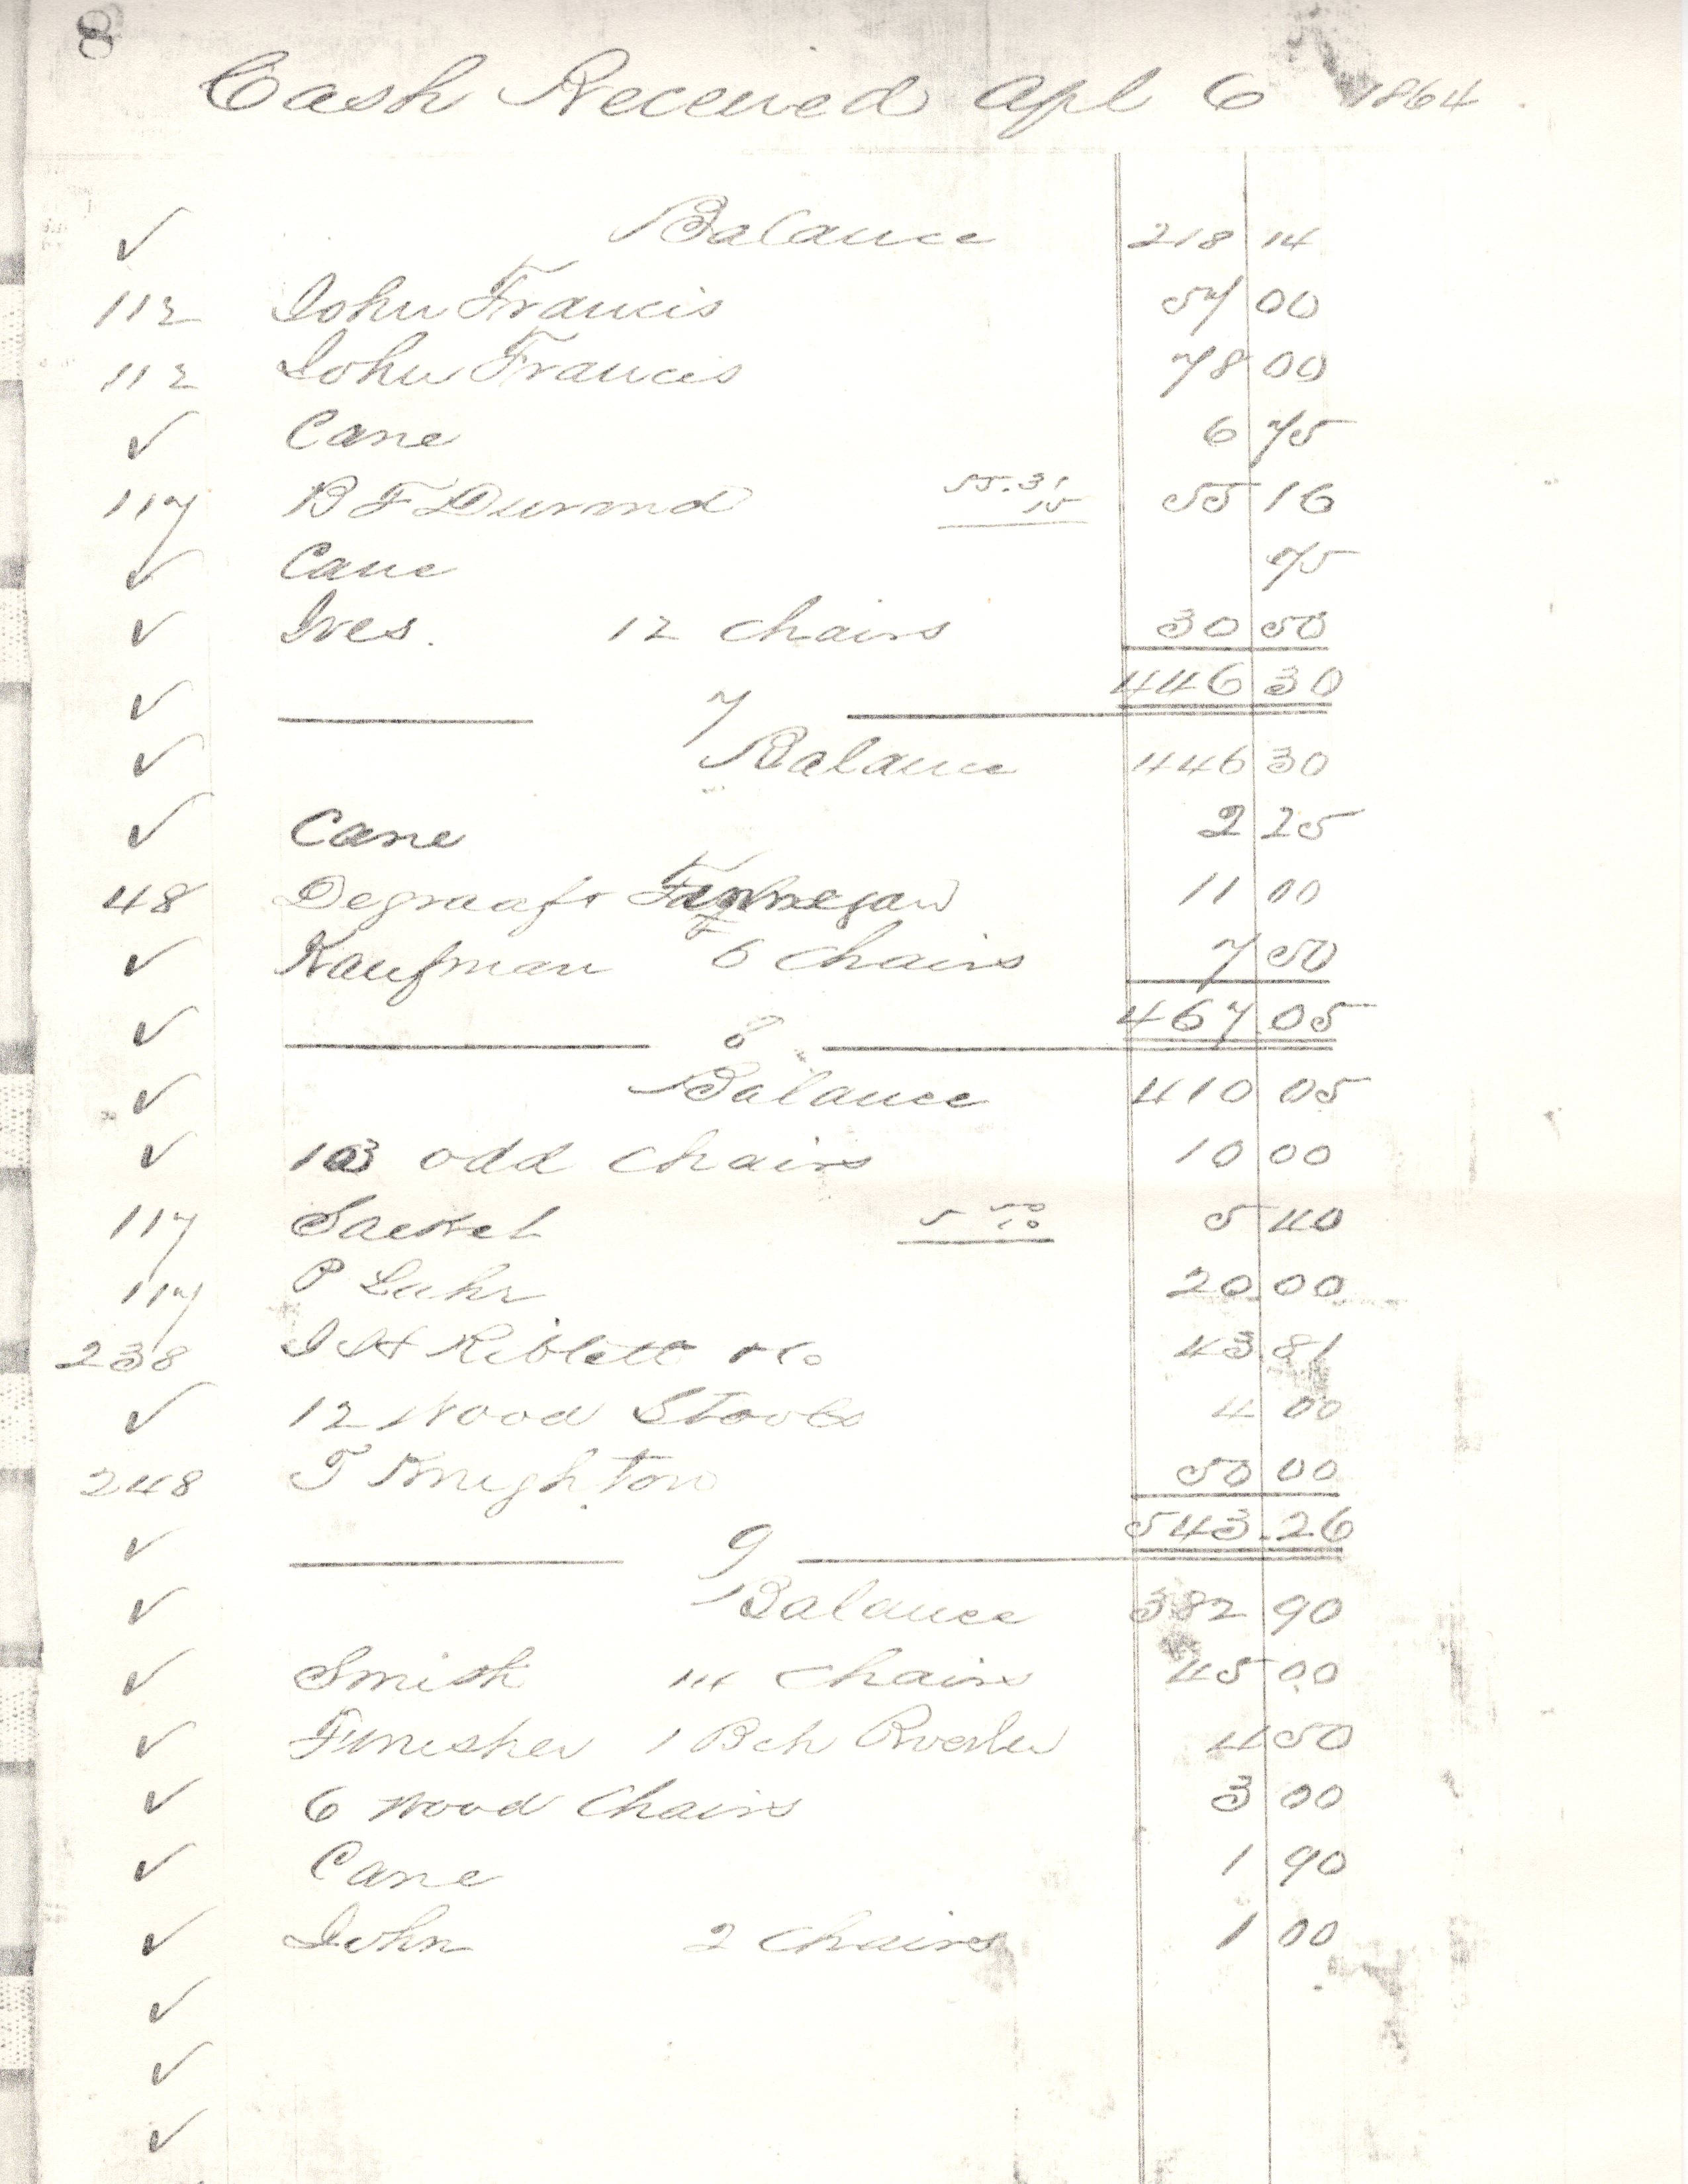 8
Cash Received Apl 6 1864
✓ Balance 218 14
112 John Francis 57 00
112 John Francis 78 00
✓ Cane 6 75
117 B F Durand 55.31 15 55 16
✓ Cane 75
✓ Ives. 12 chairs 30 50
446 30
✓ 7
✓ Balance 446 30
✓ Cane 2 25
48 Degraaf & 11 00
✓ Kaufman 6 Chairs 7 50
467 05
✓ 8
✓ Balance 410 05
✓ odd chairs 10 00
117 5 50 10 5 40
117 P Luhr 20 00
238 J H Riblett & Co 43.81
✓ 12 Wood Stools 4 00
248 T Knighton 50 00
543.26
✓ 9
✓ Balance 382 90
✓ Smith chairs 45 00
✓ Finisher 1 Bch 4 50
✓ 6 Wood Chairs 3 00
✓ Cane 1 90
✓ John 2 Chairs 1 00
✓
✓
✓